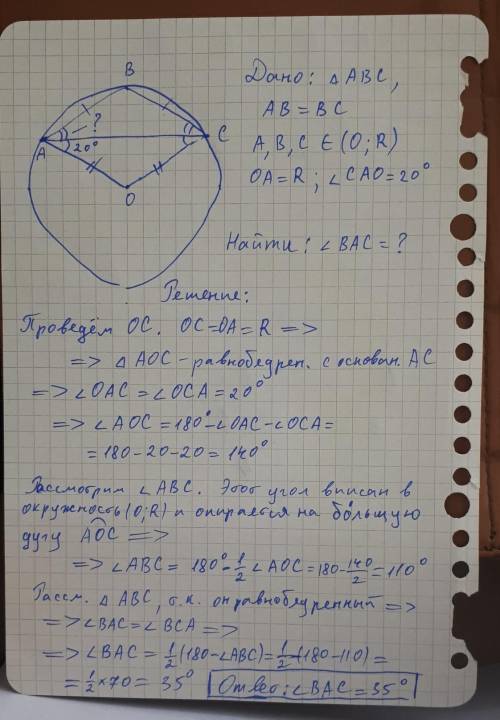 B
Дано: △ABC,
AB = BC
?
A
20°
C
A, B, C ∈ (O; R)
OA = R; ∠CAO = 20°
O
Найти: ∠BAC = ?
Решение:
Проведём OC. OC = OA = R =>
=> △AOC – равнобедрен. с основан. AC
=> ∠OAC = ∠OCA = 20°
=> ∠AOC = 180° - ∠OAC - ∠OCA =
= 180 - 20 - 20 = 140°
Рассмотрим ∠ABC. Этот угол вписан в
окружность (O; R) и опирается на бо́льшую
дугу AOC =>
=> ∠ABC = 180° - 1/2 ∠AOC = 180 - 140/2 = 110°
Рассм. △ABC, т.к. он равнобедренный =>
=> ∠BAC = ∠BCA =>
=> ∠BAC = 1/2 (180 - ∠ABC) = 1/2 (180 - 110) =
= 1/2 × 70 = 35° Ответ: ∠BAC = 35°